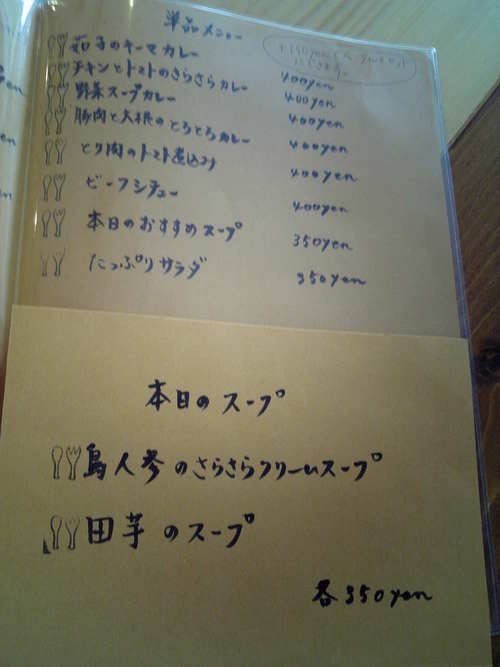 単品メニュー
+150yenで
にできます
茄子のキーマカレー 400yen
チキンとトマトのさらさらカレー 400yen
野菜スープカレー 400yen
豚肉と大根のとろとろカレー 400yen
とり肉のトマト煮込み 400yen
ビーフシチュー 400yen
本日のおすすめスープ 350yen
たっぷりサラダ 350yen
yen
本日のスープ
島人参のさらさらクリームスープ
田芋のスープ
各350yen